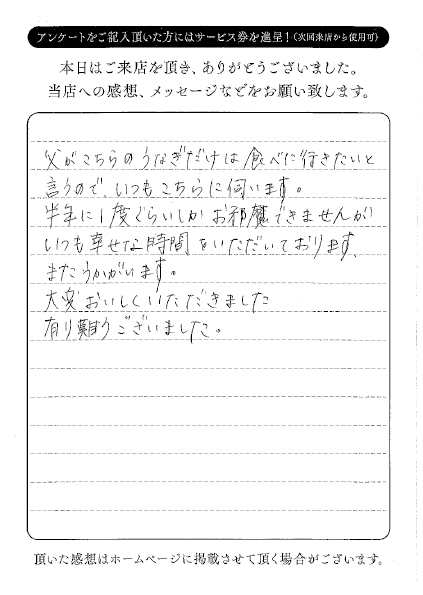 アンケートをご記入頂いた方にはサービス券を進呈！（次回来店から使用可）
本日はご来店を頂き、ありがとうございました。
当店への感想、メッセージなどをお願い致します。
父がこちらのうなぎだけは食べに行きたいと
言うので、いつもこちらに伺います。
半年に1度ぐらいしかお邪魔できませんが
いつも幸せな時間をいただいております、
またうかがいます。
大変おいしくいただきました
有り難うございました。
頂いた感想はホームページに掲載させて頂く場合がございます。